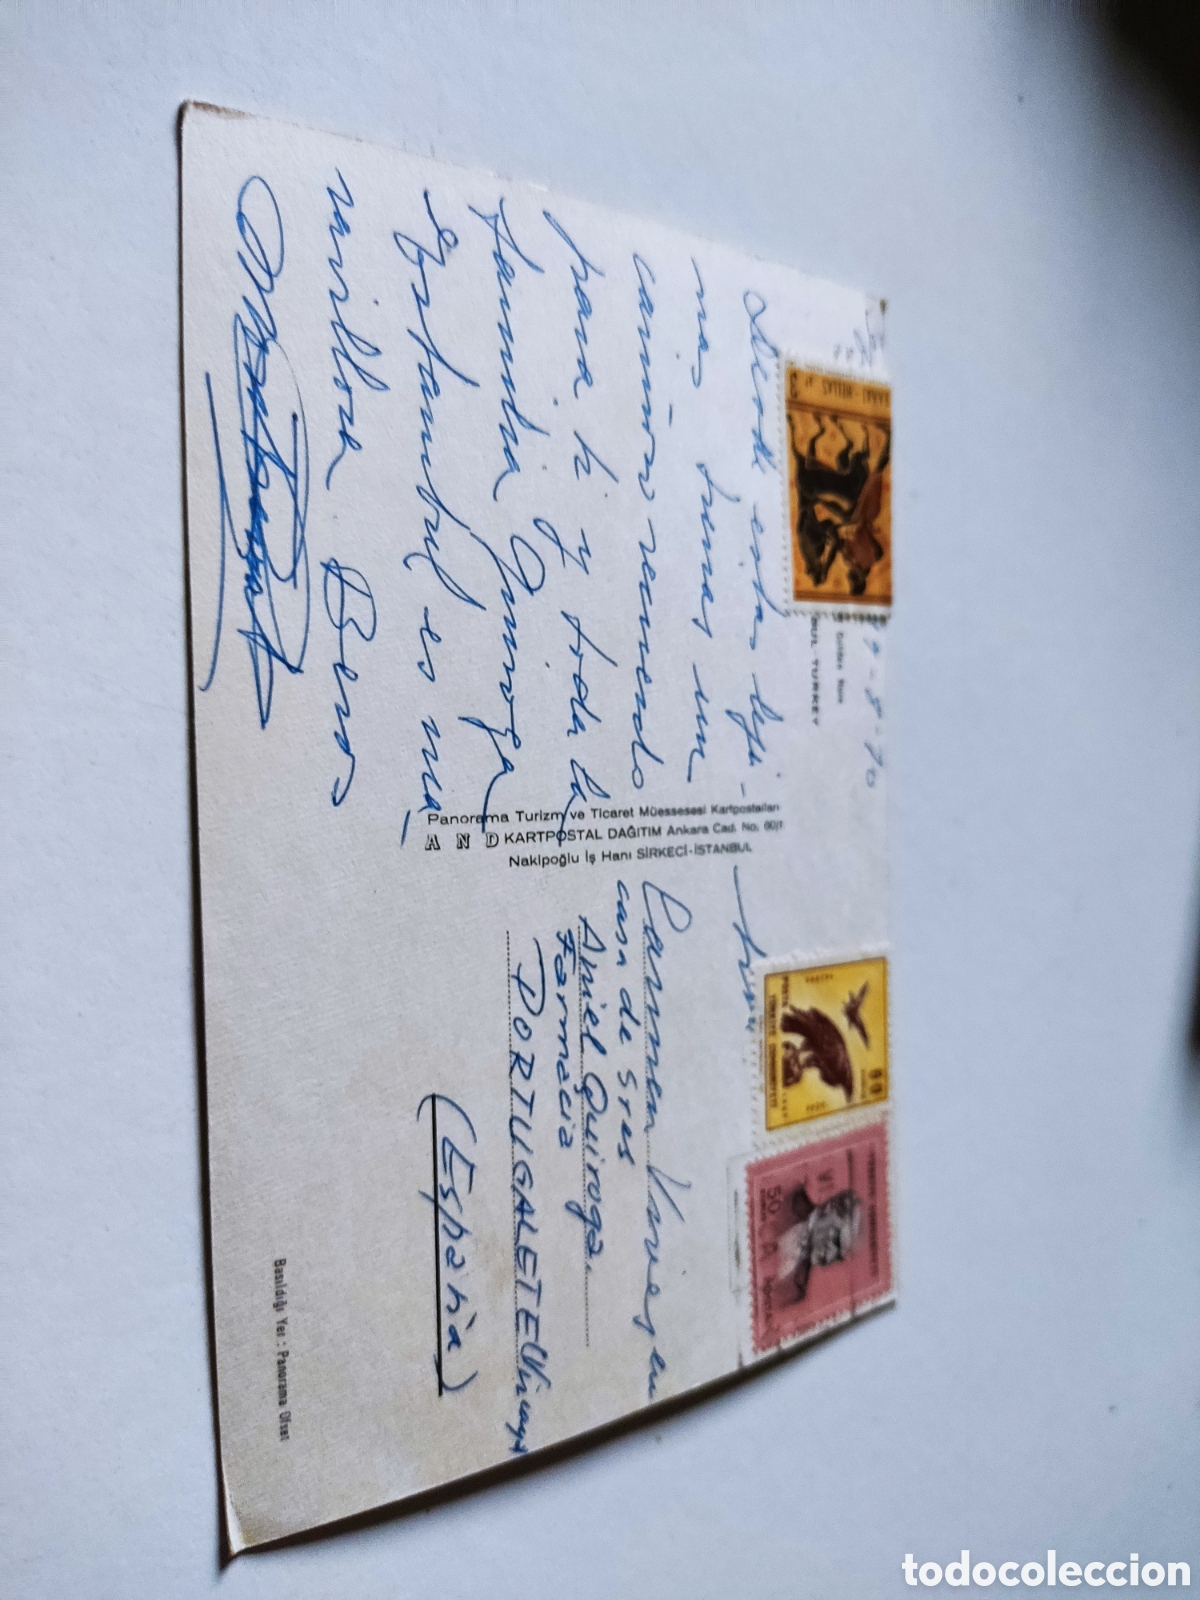 19-8-70
Golden Horn
BUL-TURKEY
Desde estas leji-
nas tierras un
cariñoso recuerdo
para ti y toda la
familia Quiroga
Estambul es ma-
ravillosa. Besos
Panorama Turizm ve Ticaret Müessesesi Kartpostalları
AND KARTPOSTAL DAĞITIM Ankara Cad. No. 60/1
Nakipoğlu İş Hanı SİRKECİ-İSTANBUL
ΕΛΛΑΣ-HELLAS
TÜRKİYE CUMHURİYETİ
POSTA
60
TÜRKİYE CUMHURİYETİ
50
Carmen
casa de Sres
Ariel Quiroga.
Farmacia
PORTUGALETE (Vizcaya
(España)
Basıldığı Yer: Panorama Ofset
todocoleccion